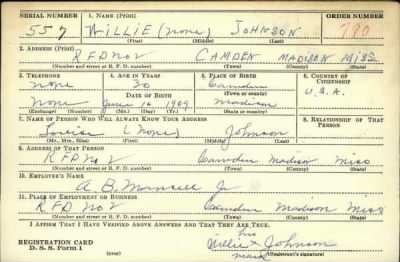 SERIAL NUMBER 1. NAME (Print) ORDER NUMBER
557 WILLIE (none) JOHNSON 780
(First) (Middle) (Last)
2. ADDRESS (Print)
RFD No 2 CAMDEN MADISON MISS
(Number and street or R. F. D. number) (Town) (County) (State)
3. TELEPHONE 4. AGE IN YEARS 5. PLACE OF BIRTH 6. COUNTRY OF CITIZENSHIP
none 30 Camden
DATE OF BIRTH (Town or county) U.S.A.
none June 1909 Madison
(Exchange) (Number) (Mo.) (Day) (Yr.) (State or country)
7. NAME OF PERSON WHO WILL ALWAYS KNOW YOUR ADDRESS 8. RELATIONSHIP OF THAT PERSON
Louise (None) Johnson
(Mr., Mrs., Miss) (First) (Middle) (Last)
9. ADDRESS OF THAT PERSON
RFD No 2 Camden Madison Miss
(Number and street or R. F. D. number) (Town) (County) (State)
10. EMPLOYER'S NAME
A B Jr
11. PLACE OF EMPLOYMENT OR BUSINESS
RFD No 2 Camden Madison Miss
(Number and street or R. F. D. number) (Town) (County) (State)
I AFFIRM THAT I HAVE VERIFIED ABOVE ANSWERS AND THAT THEY ARE TRUE.
his
REGISTRATION CARD Willie x Johnson
D. S. S. Form 1 (over) mark (Registrant's signature)